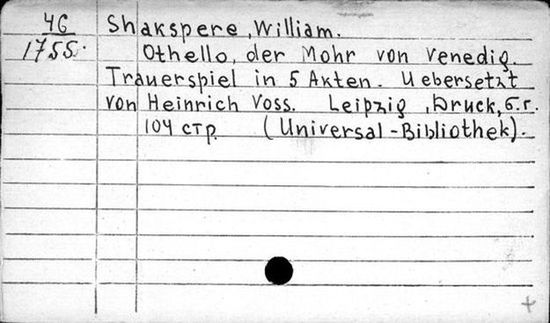 46
1755.
Shakspere, William.
Othello, der Mohr von Venedig.
Trauerspiel in 5 Akten. Uebersetzt
von Heinrich Voss. Leipzig, Druck, б.г.
104 стр. (Universal-Bibliothek).
+